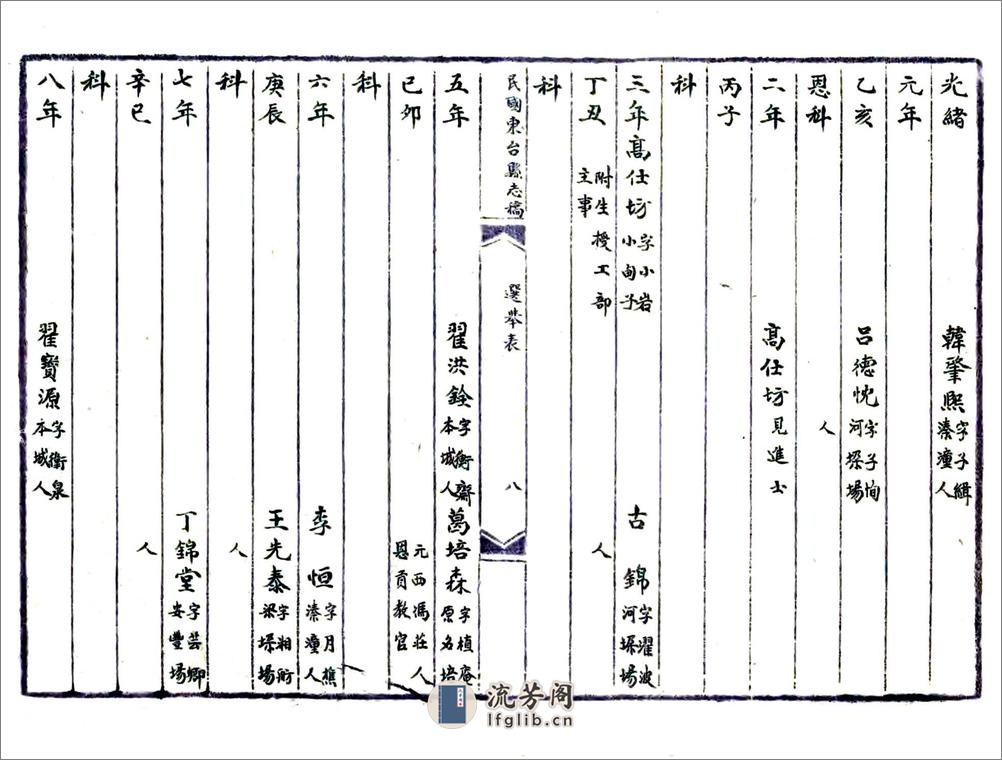 光緒 韓肇熙字子緝溱潼人
元年
乙亥 呂德忱字子恂河垛場
恩科 人
二年 高仕坊見進士
丙子
科
三年高仕坊字小岩小甸子 古錦字濯波河垛場
丁丑 附生授工部主事 人
科
民國東台縣志稿 選舉表 八
五年 翟洪銓字衡齋本城人 葛培森字植庵原名培
己卯 元西馮莊人恩貢教官
科
六年 李恒字月樵溱潼人
庚辰 王先泰字湘衔梁垛場
科 人
七年 丁錦堂字芸卿安豐場
辛巳 人
科
八年 翟寶源字衡泉本城人
流芳阁
lfglib.cn